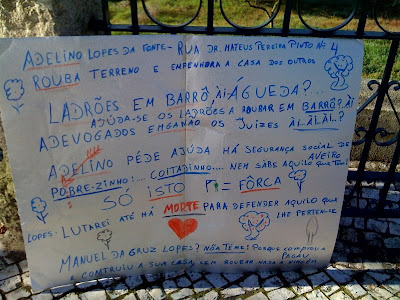 ADELINO LOPES DA FONTE - RUA DR. MATEUS PEREIRA PINTO Nº 4
ROUBA TERRENO E EMPENHORA A CASA DOS OUTROS
LADRÕES EM BARRÔ, ÀI ÁGUEDA?...
AJUDA-SE OS LADRÕES A ROUBAR EM BARRÔ? ÀI
ADEVOGADOS EMGANÃO OS JUIZES ÀI, ÀI, ÀI..?
ADELINO PÉDE AJÚDA HÁ SEGURANÇA SOCIAL DE
AVEIRO
POBRE-ZINHO!... COITADINHO.... NEM SÁBE AQUILO QUE TEM
SÓ ISTO = FÔRCA
LOPES: LUTAREI ATÉ HÁ MORTE PARA DEFENDER AQUILO QUE
LHE PERTENCE
MANUEL DA CRUZ LOPES? NÃO TEME! PORQUE COMPROU A
PAGÁU
E CONTRUIU A SUA CASA, SEM ROUBAR NADA A NINGÉM